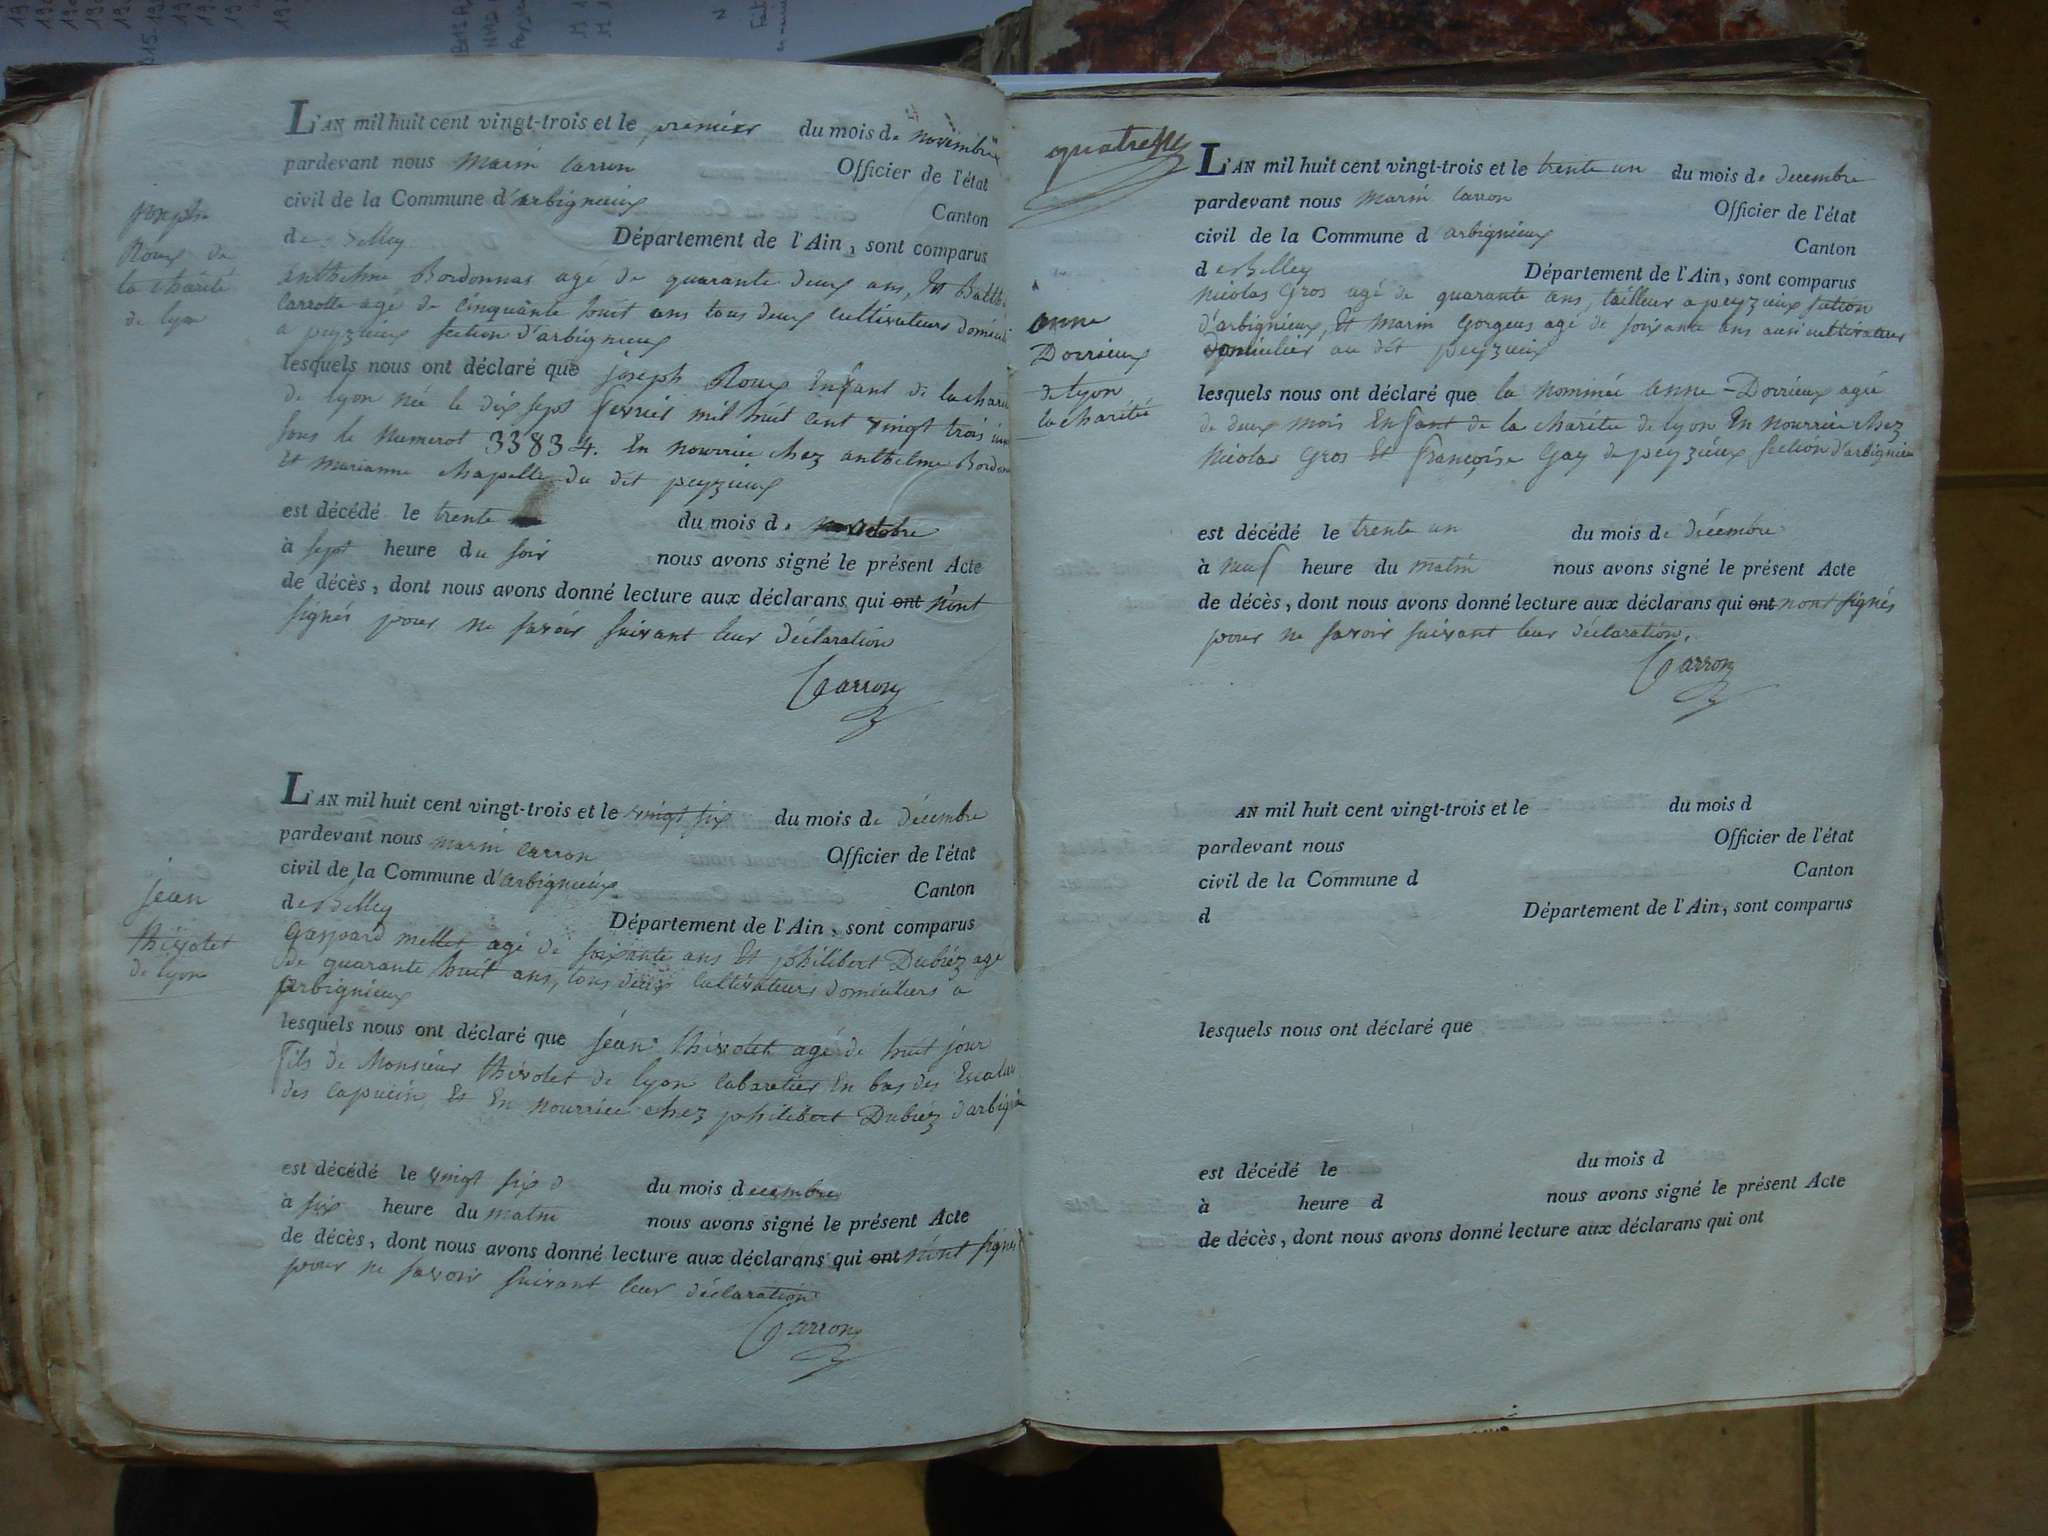 joseph
Roux de
la charité
de lyon
L'AN mil huit cent vingt-trois et le premier du mois de novembre
pardevant nous marin Carron Officier de l'état
civil de la Commune d'arbignieux Canton
de Belley Département de l'Ain, sont comparus
anthelme Bordonnas agé de quarante deux ans, Et
Carrotte agé de cinquante huit ans tous deux cultivateurs
a peyzieux section d'arbignieux
lesquels nous ont déclaré que joseph Roux Enfant de la
de lyon né le dix sept fevrier mil huit cent vingt trois
sous le numerot 33834. En nourrice chez anthelme
Et marianne chapelle du dit peyzieux
est décédé le trente du mois de octobre
à sept heure du soir nous avons signé le présent Acte
de décès, dont nous avons donné lecture aux déclarans qui ont n'ont
signés pour ne savoir suivant leur déclaration
Carron
jean
thivolet
de lyon
L'AN mil huit cent vingt-trois et le vingt six du mois de décembre
pardevant nous marin Carron Officier de l'état
civil de la Commune d'arbignieux Canton
de Belley Département de l'Ain, sont comparus
Gaspard mellet agé de soixante ans Et philibert Dubiez age
de quarante huit ans, tous deux cultivateurs domiciliers a
arbignieux
lesquels nous ont déclaré que jean thivolet agé de huit jour
fils de Monsieur thivolet de lyon cabaretier En bas des
des capucin Et En nourrice chez philibert Dubiez
est décédé le vingt six d du mois decembre
à six heure du matin nous avons signé le présent Acte
de décès, dont nous avons donné lecture aux déclarans qui ont n'ont signés
pour ne savoir suivant leur déclaration
Carron
quatre
anne
Dorrieux
de lyon
la charitée
L'AN mil huit cent vingt-trois et le trente un du mois de decembre
pardevant nous marin Carron Officier de l'état
civil de la Commune d arbignieux Canton
de Belley Département de l'Ain, sont comparus
Nicolas Gros agé de quarante ans, tailleur a peyzieux section
d'arbignieux, Et Marin Gorgeus agé de soixante ans aussi cultivateur
domicilier au dit peyzieux
lesquels nous ont déclaré que la nommée anne-Dorrieux agée
de deux mois Enfant de la charitée de lyon En nourrice chez
Nicolas Gros Et françoise Gay de peyzieux section d'arbignieux
est décédé le trente un du mois de décembre
à neuf heure du matin nous avons signé le présent Acte
de décès, dont nous avons donné lecture aux déclarans qui ont n'ont signés
pour ne savoir suivant leur déclaration.
Carron
AN mil huit cent vingt-trois et le du mois d
pardevant nous Officier de l'état
civil de la Commune d Canton
d Département de l'Ain, sont comparus
lesquels nous ont déclaré que
est décédé le du mois d
à heure d nous avons signé le présent Acte
de décès, dont nous avons donné lecture aux déclarans qui ont